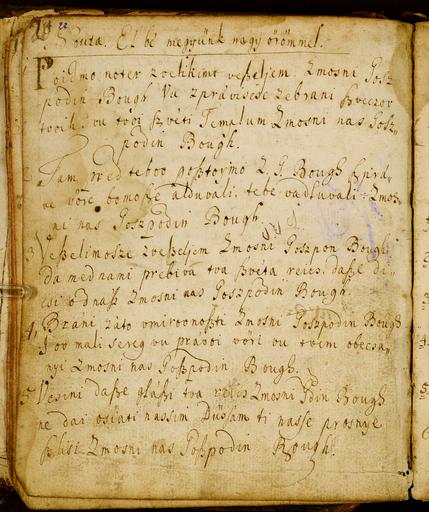 Nouta. El bé megyünk nagy örömmel.
Poidmo noter zvelikimi veßeljem. Zmosni Gosz-
podin Bough Va zprávisese zebrani
tvoih. vu tvoi ßvéti Templum Zmosni nas Gosz-
podin Bough.
2 Tam pred tebov
ve vöre bomoße alduvali. tebe vadluvali Zmos-
ni nas Goszpodin Bough.
3 Veßelimosze zveßeljem Zmosni Goszpon Bough
da med nami prebiva tva ßveta reics. daße di-
csi od naß Zmosni nas Goszpodin Bough.
4. Brani záto vmirovnoßti Zmosni Goßpodin Bough
mali sereg vu pravoi vöri vu tvem obecsa-
nyi Zmosni nas Goßpodin Bough.
5. Vcsini daße glaßi tva reics Zmosni Pdin Bough
ne dai osztati nassim Düssam ti nasse prosnye
ßlisi Zmosni nas Goßpodin Bough.